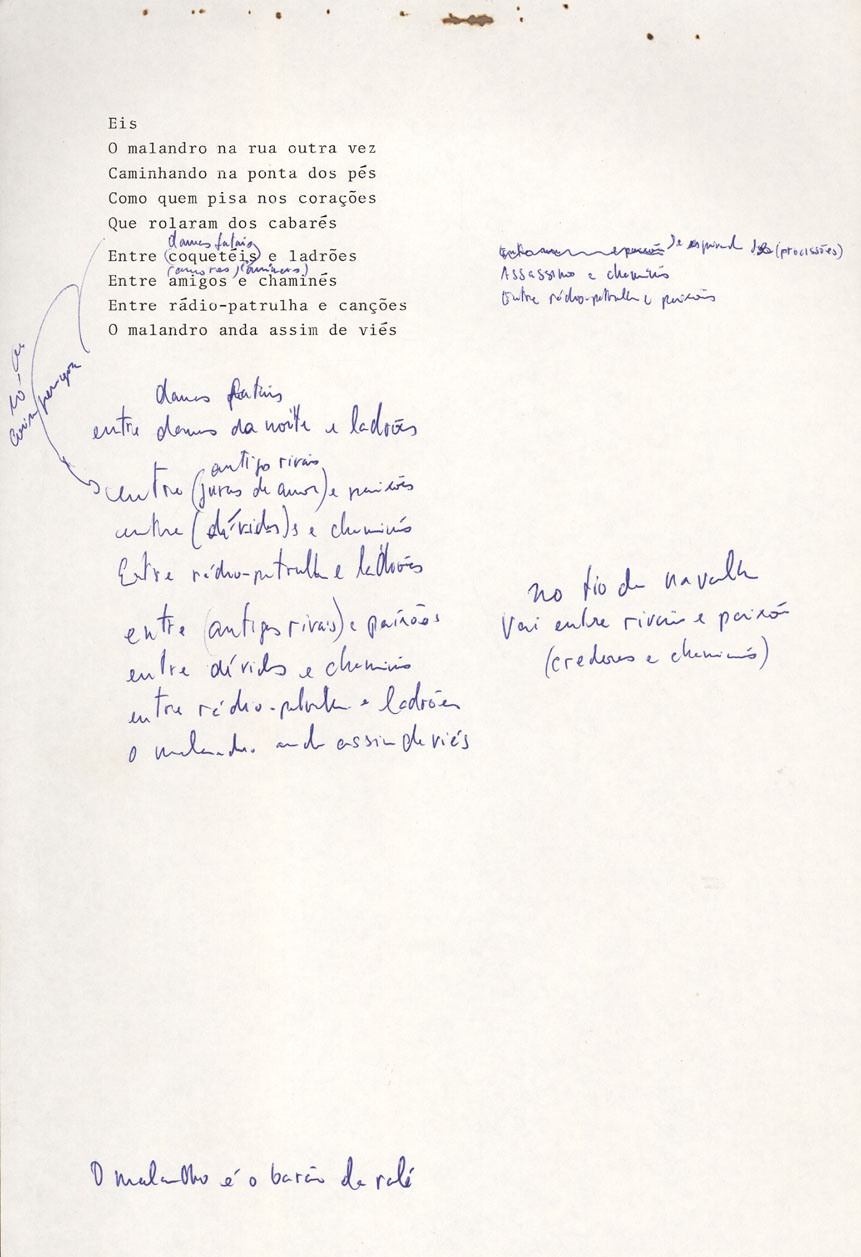 Eis
O malandro na rua outra vez
Caminhando na ponta dos pés
Como quem pisa nos corações
Que rolaram dos cabarés
damas fatais
Entre (coquetéis) e ladrões
(amores)
Entre amigos e chaminés
Entre rádio-patrulha e canções
O malandro anda assim de viés
(procissões)
Assassino e chaminés
Entre rádio-patrulha e paixões
damas fatais
entre damas da noite e ladrões
antigos rivais
entre (juras de amor) e paixões
entre (dúvidas) e chaminés
Entre rádio-patrulha e ladrões
entre (antigos rivais) e paixões
entre dúvidas e chaminés
entre rádio-patrulha e ladrões
o malandro anda assim de viés
no fio da navalha
Vai entre rivais e paixões
(credores e chaminés)
O malandro é o barão da ralé